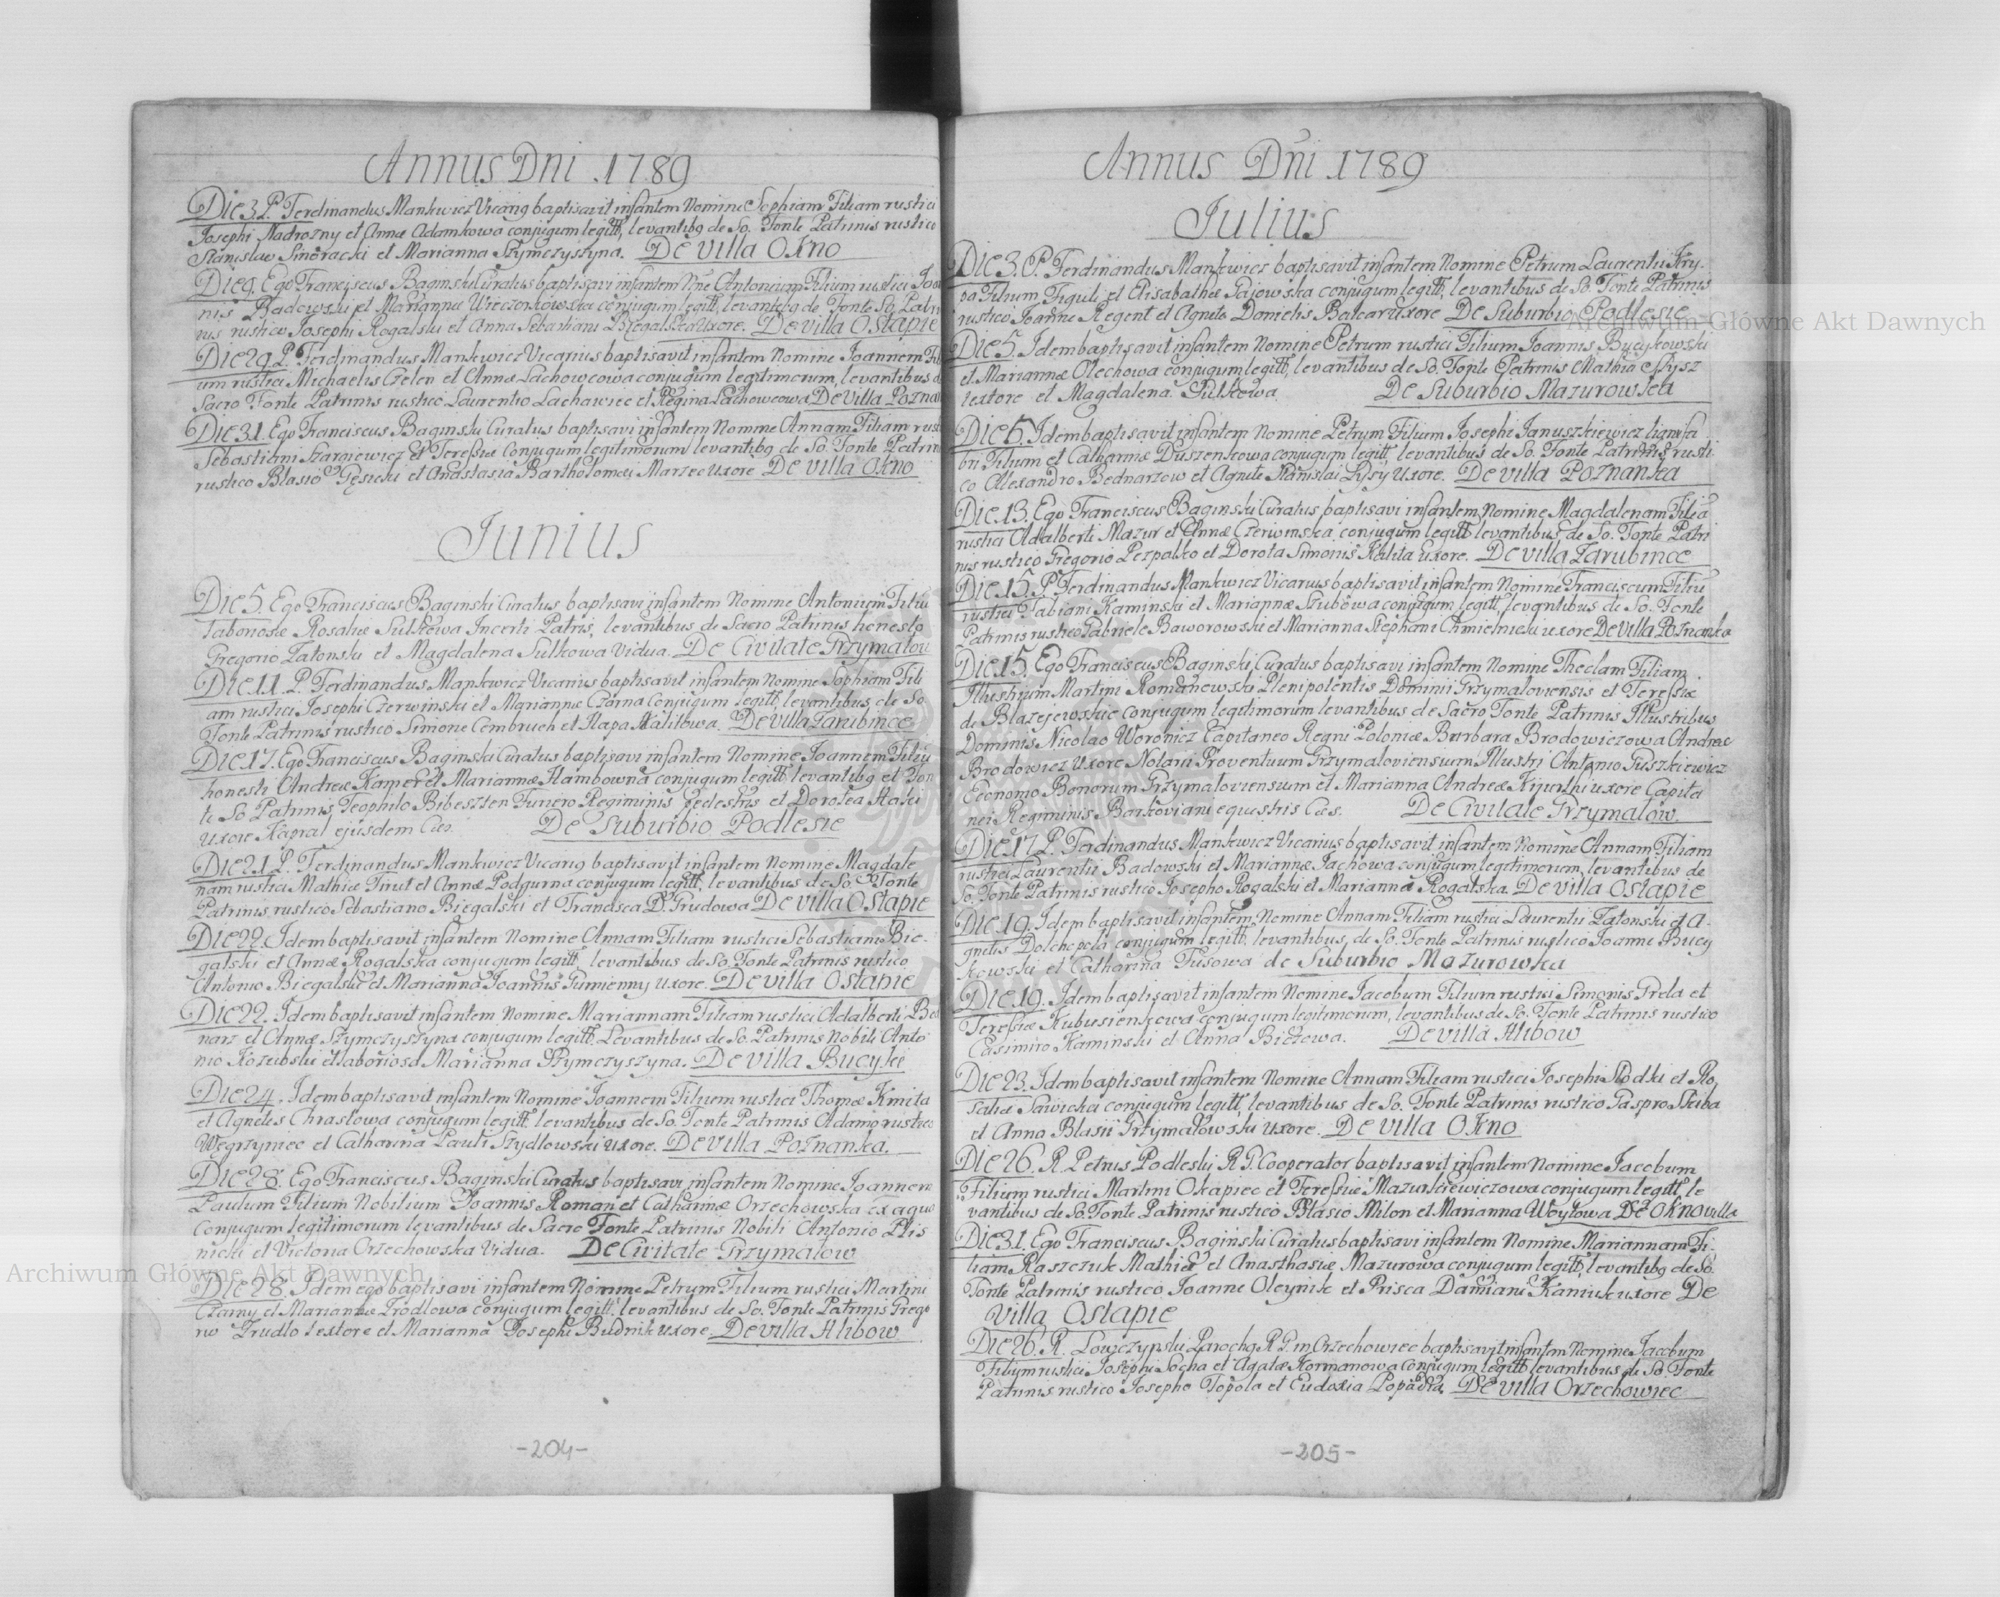 Annus Dni 1789
Die 3. P. Ferdinandus Mankwicz Vicarig baptisavit infantem Nomine Sophiam Filiam rustici
Josephi Nadrozny et Annæ Adamkowa conjugum legitt, levantibg de So. Fonte Patrinis rustico
Stanislao et Marianna Szymczyszyna. De Villa Okno
Die 9. Ego Franciscus Baginski Curatus baptisavi infantem Nne Antonium Filium rustici Joan
nis Badowski et Mariannæ Wieczorkowska conjugum legitt, levantibg de Fonte So. Patri
nis rustico Josephi Rogalski et Anna Sebastiani Biegalski Uxore. De villa Ostapie
Die 29. P. Ferdinandus Mankwicz Vicarius baptisavit infantem Nomine Joannem Fili
um rustici Michaelis Gelen et Annæ Lachowcowa conjugum legitimorum, levantibus de
Sacro Fonte Patrinis rustico Laurentio Lachawiec et Regina Lachowcowa De Villa Poznan
Die 31. Ego Franciscus Baginski Curatus baptisavi infantem Nomine Annam Filiam rusti
Sebastiani et Teresiæ Conjugum legitimorum levantibg de So. Fonte Patrin
rustico Blasio et Anastasia Bartholomæi Marzec uxore De Villa Okno
Junius
Die 5. Ego Franciscus Baginski Curatus baptisavi infantem Nomine Antonium Filiu
laboriosæ Rosaliæ Sulkowa Incerti Patris, levantibus de Sacro Patrinis honesto
Gregorio Zatonski et Magdalena Sulkowa Vidua. De Civitate Grzymalow
Die 11. P. Ferdinandus Mankwicz Vicarius baptisavit infantem Nomine Sophiam Fili
am rustici Josephi Czerwinski et Mariannæ Czarna Conjugum legitt, levantibus de So.
Fonte Patrinis rustico Simone Cembruch et Hapa Kalitowa. De Villa Zarubince
Die 17. Ego Franciscus Baginski Curatus baptisavi infantem Nomine Joannem Filiu
honesti Andreæ Kamer et Mariannæ Flambowna conjugum legitt, levantibg et Fon
te So Patrinis Teophilo Bibeszten Furiero Regiminis pedestris et Dorotea
Uxore Kapral ejusdem Cæs. De Suburbio Podlesie
Die 21. P. Ferdinandus Mankwicz Vicarig baptisavit infantem Nomine Magdale
nam rustici Mathiæ Firut et Annæ Podgurna conjugum legitt, levantibus de So. Fonte
Patrinis rustico Sebastiano Biegalski et Francisca De Villa Ostapie
Die 22. Idem baptisavit infantem Nomine Annam Filiam rustici Sebastiani Bie-
galski et Annæ Rogalska conjugum legitt, levantibus de So. Fonte Patrinis rustico
Antonio Biegalski et Marianna Joannis Gumienny Uxore. De Villa Ostapie
Die 22. Idem baptisavit infantem Nomine Mariannam Filiam rustici Adalberti
narz et Annæ Szymczyszyna conjugum legitt, Levantibus de So. Patrinis Nobili Anto
nio Kozubski et laboriosa Marianna Szymczyszyna. De Villa Bucyki
Die 24. Idem baptisavit infantem Nomine Joannem Filium rustici Thomæ Kmita
et Agnetis Chrastowa conjugum legitt. levantibus de So. Fonte Patrinis Adamo rustico
Wegrzyniec et Catharina Pauli Szydlowski uxore. De Villa Poznanka.
Die 28. Ego Franciscus Baginski Curatus baptisavi infantem Nomine Joannem
Paulum Filium Nobilium Joannis Roman et Catharinæ Orzechowska ex aquo
Conjugum legitimorum levantibus de Sacro Fonte Patrinis Nobili Antonio Plis
nicki et Victoria Orzechowska Vidua. De Civitate Grzymalow
Die 28. Idem ego baptisavi infantem Nomine Petrum Filium rustici Martini
Czarny et Mariannæ Zrodlowa conjugum legitt, levantibus de So. Fonte Patrinis Grego
rio Trudlo textore et Marianna Josephi Budnik uxore. De villa Hlibow
-204-
Annus Dni 1789
Julius
Die 3. P. Ferdinandus Mankwicz baptisavit infantem Nomine Petrum Laurentii Kry-
pa Filium Figuli et Elisabathæ Gajewska conjugum legitt, levantibus de So. Fonte Patrinis
rustico Joanne Regent et Agnete Danielis Uxore De Suburbio Podlesie
Die 5. Idem baptisavit infantem Nomine Petrum rustici Filium Joannis Bucykowski
et Mariannæ Olechowa conjugum legitt, levantibus de So. Fonte Patrinis Mathia
textore et Magdalena Sulkowa. De Suburbio Mazurowska
Die 6. Idem baptisavit infantem Nomine Petrum Filium Josephi Januszkiewicz lignifa
bri Filium et Catharinæ Duszenkowa conjugum legitt, levantibus de So. Fonte Patrinis rusti
co Alexandro Bednarzow et Agnete Stanislai Lysy Uxore. De villa Poznanka
Die 13. Ego Franciscus Baginski Curatus baptisavi infantem Nomine Magdalenam Filia
rustici Adalberti Mazur et Annæ Czerwinska conjugum legitt levantibus de So. Fonte Patri
nis rustico Gregorio Pezpalko et Dorota Simonis Kalita uxore. De villa Zarubince
Die 15. P. Ferdinandus Mankwicz Vicarius baptisavit infantem Nomine Franciscum Filiu
rustici Fabiani Kaminski et Mariannæ Szubowa conjugum legitt, levantibus de So. Fonte
Patrinis rustico Gabriele Baworowski et Marianna Stephani Chmielniski uxore De Villa Poznanka
Die 15. Ego Franciscus Baginski Curatus baptisavi infantem Nomine Theclam Filiam
Illustrium Martini Romanowski Plenipotentis Dominii Grzymaloviensis et Teresiæ
de Blazejewskie conjugum legitimorum levantibus de Sacro Fonte Patrinis Illustribus
Dominis Nicolao Woronicz Capitaneo Regni Poloniæ Barbara Brodowiczowa Andreæ
Brodowicz Uxore Notarii Proventuum Grzymaloviensium Illustri Antonio Guszkiewicz
Economo Bonorum Grzymaloviensium et Marianna Andreæ uxore Capita
nei Regiminis Barkoviani equestris Cæs. De Civitate Grzymalow
Die 17. P. Ferdinandus Mankwicz Vicarius baptisavit infantem Nomine Annam Filiam
rustici Laurentii Badowski et Mariannæ Jachowa conjugum legitimorum, levantibus de
So. Fonte Patrinis rustico Josepho Rogalski et Marianna Rogalska. De villa Ostapie
Die 19. Idem baptisavit infantem Nomine Annam Filiam rustici Laurentii Zatonski et A-
gnetis conjugum legitt, levantibus de So. Fonte Patrinis rustico Joanne Bucy
kowski et Catharina Fusowa de Suburbio Mazurowska
Die 19. Idem baptisavit infantem Nomine Jacobum Filium rustici Simonis Grela et
Teresiæ Kubusienkowa conjugum legitimorum, levantibus de So. Fonte Patrinis rustico
Casimiro Kaminski et Anna Biczowa. De villa Hlibow
Die 23. Idem baptisavit infantem Nomine Annam Filiam rustici Josephi Slodki et Ro,
saliæ Sawicka conjugum legitt, levantibus de So. Fonte Patrinis rustico Gaspro Skiba
et Anna Blasii Grzymalowski uxore. De Villa Okno
Die 26. R. Petrus Podleski R. G. Cooperator baptisavit infantem Nomine Jacobum
Filium rustici Martini Okapiec et Teresiæ Mazurkiewiczowa conjugum legitt, le
vantibus de So. Fonte Patrinis rustico Blasio Milon et Marianna Woytowa De Okno villa
Die 31. Ego Franciscus Baginski Curatus baptisavi infantem Nomine Mariannam Fi-
liam Raszczuk Mathiæ et Anasthasiæ Mazurowa conjugum legitt, levantibg de So.
Fonte Patrinis rustico Joanne Oleynik et Prisca Damiani Kaniuk uxore De
Villa Ostapie
Die 26. R. Parocho R. G. in Orzechowiec baptisavit infantem Nomine Jacobum
Filium rustici Josephi Socha et Agatæ Hormanowa Conjugum legitt levantibus de So Fonte
Patrinis rustico Josepho Topola et Eudoxia Popadia. De villa Orzechowiec
-205-
Archiwum Główne Akt Dawnych
Archiwum Główne Akt Dawnych